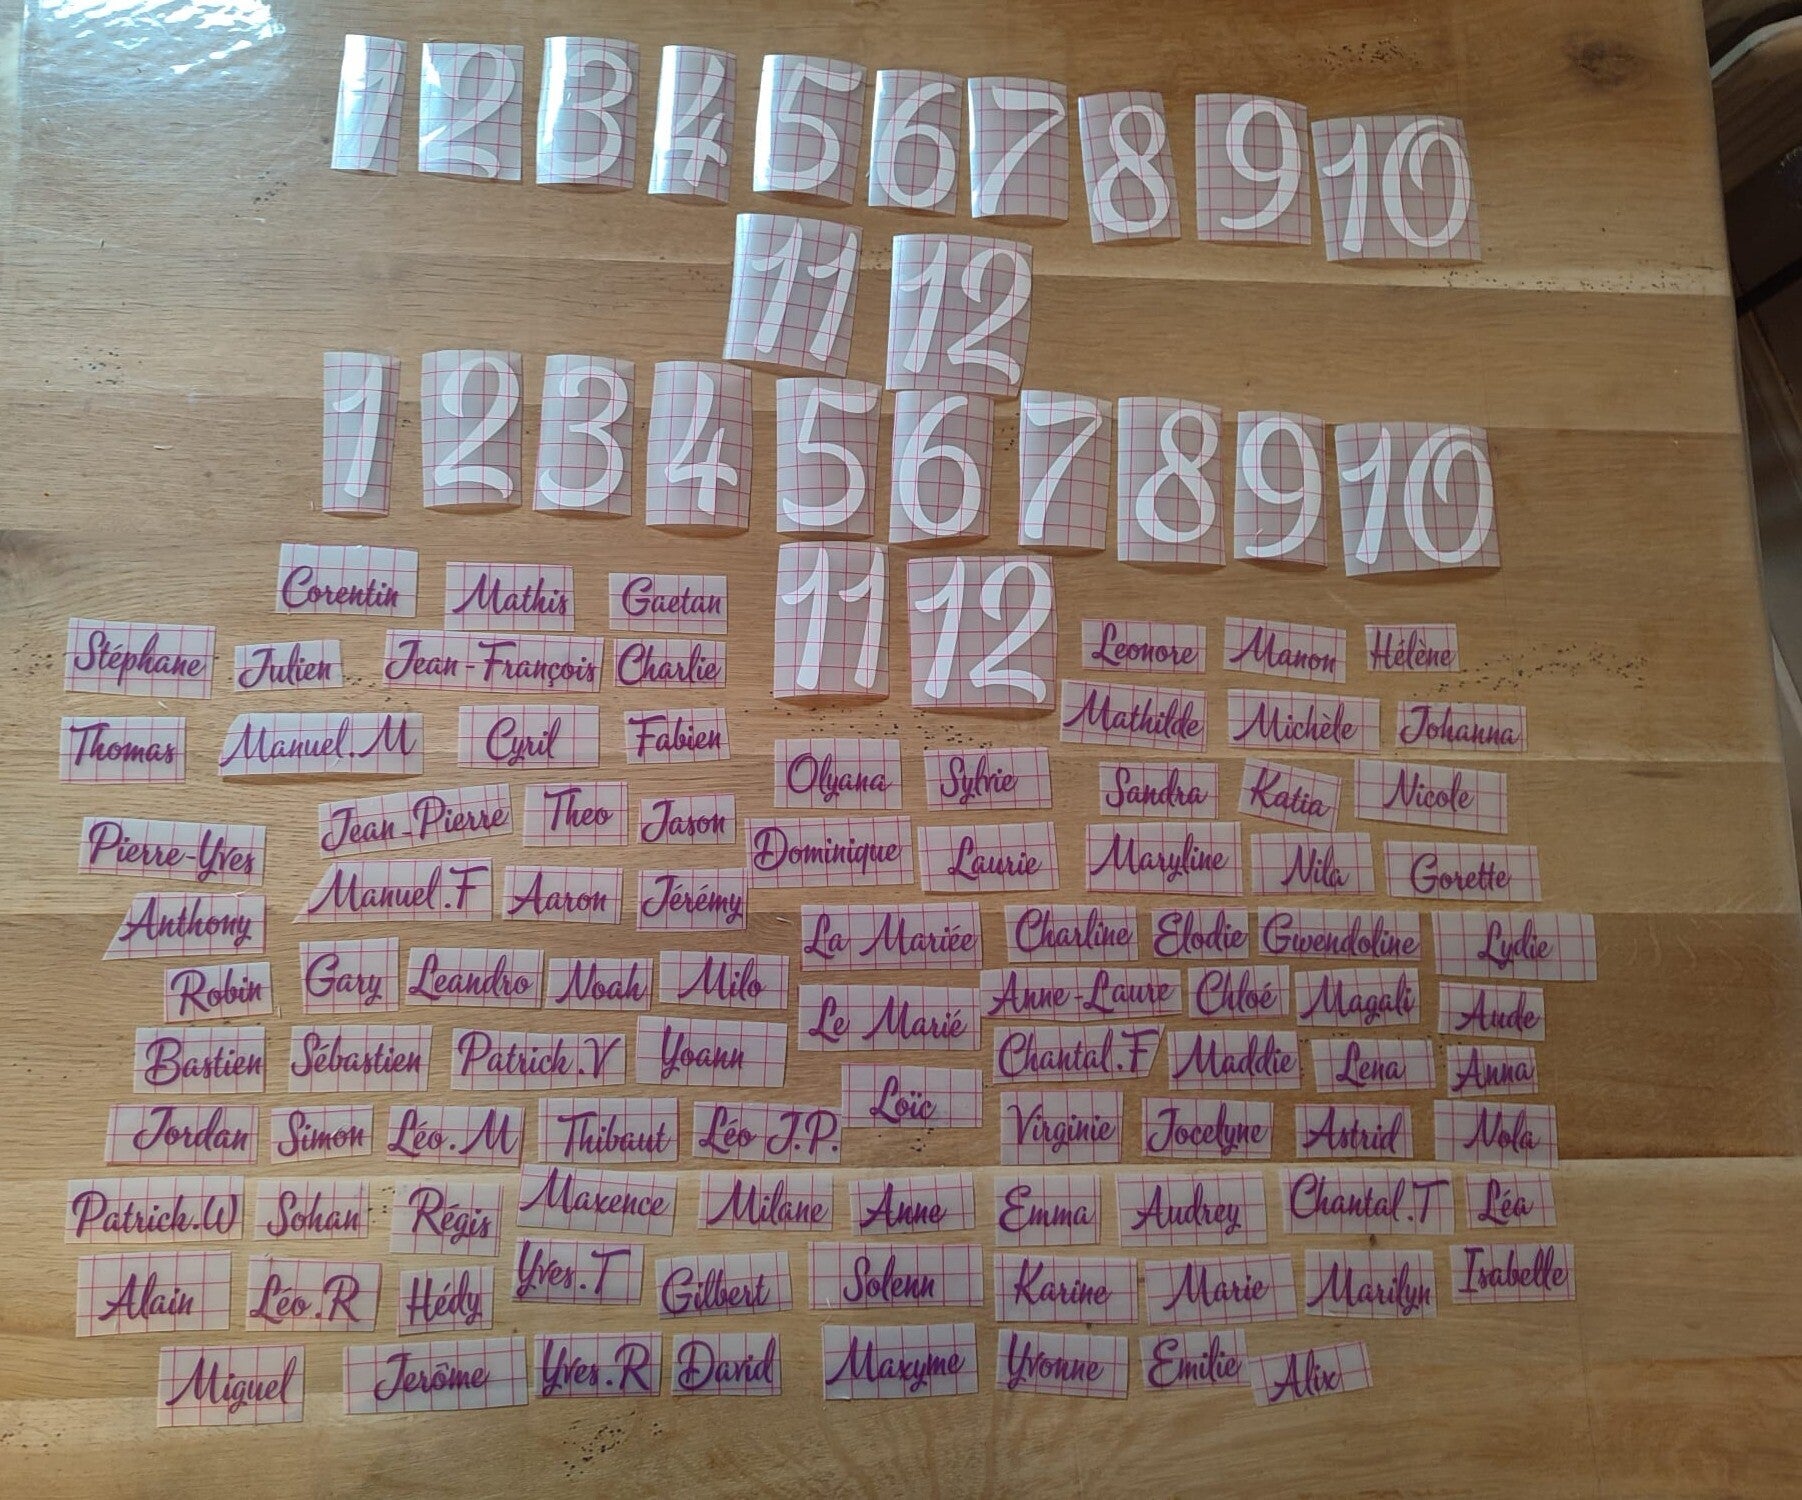 1 2 3 4 5 6 7 8 9 10
11 12
1 2 3 4 5 6 7 8 9 10
11 12
Corentin Mathis Gaetan
Stéphane Julien Jean-François Charlie Leonore Manon Hélène
Thomas Manuel.M Cyril Fabien Mathilde Michèle Johanna
Olyana Sylvie Sandra Katia Nicole
Pierre-Yves Jean-Pierre Theo Jason Dominique Laurie Maryline Nila Gorette
Anthony Manuel.F Aaron Jérémy La Mariée Charline Elodie Gwendoline Lydie
Robin Gary Leandro Noah Milo Le Marié Anne-Laure Chloé Magali Aude
Bastien Sébastien Patrick.V Yoann Loïc Chantal.F Maddie Lena Anna
Jordan Simon Léo.M Thibaut Léo J.P. Virginie Jocelyne Astrid Nola
Patrick.W Sohan Régis Maxence Milane Anne Emma Audrey Chantal.T Léa
Alain Léo.R Hédy Yves.T Gilbert Solenn Karine Marie Marilyn Isabelle
Miguel Jerôme Yves.R David Maxyme Yvonne Emilie Alix